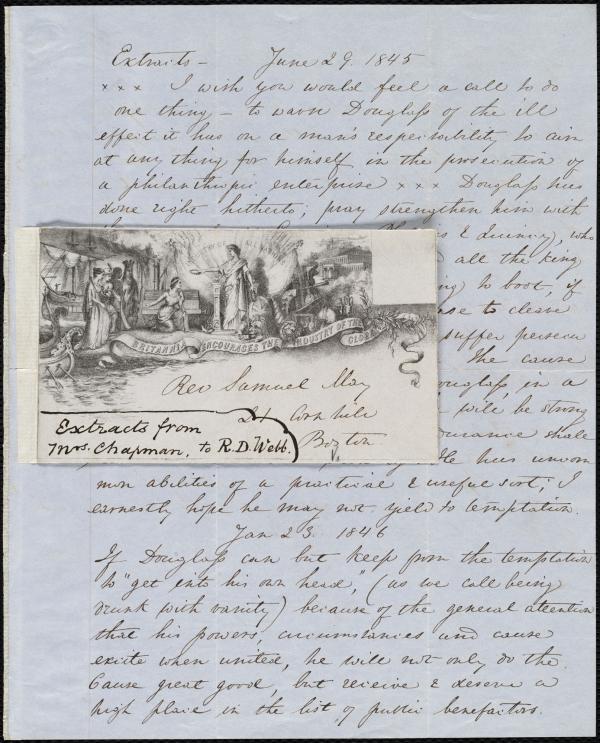 Extracts — June 29. 1845
x x x I wish you would feel a call to do
one thing — to warn Douglass of the ill
effect it has on a man's responsibility to aim
at any thing for himself in the prosecution of
a philanthropic enterprise x x x Douglass has
done right hitherto; pray strengthen him with
& Quincy, who
all the King
to boot, if
to cleave
suffer persecu
the cause
Douglass, in a
will be strong
shall
He has uncom
mon abilities of a practical & useful sort; I
earnestly hope he may not yield to temptation.
Jan 23. 1846
If Douglass can but keep from the temptation
to "get into his own head," (as we call being
drunk with vanity) because of the general attention
that his powers, circumstances and cause
excite when united, he will not only do the
Cause great good, but receive & deserve a
high place in the list of public benefactors.
BRITANNIA ENCOURAGES THE INDUSTRY OF THE GLOBE
Rev Samuel May
21 Cornhill
Boston
Extracts from
Mrs. Chapman, to R.D. Webb.